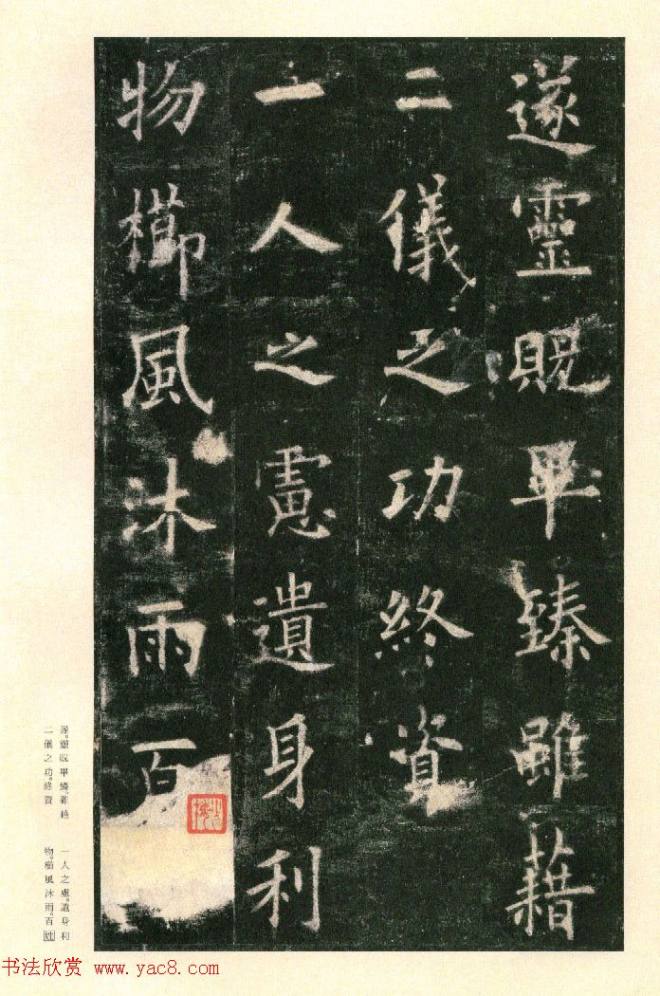 遂靈貺畢臻雖藉
二儀之功終資
一人之慮遺身利
物櫛風沐雨百
遂。靈貺畢臻。雖藉
二儀之功。終資
一人之慮。遺身利
物。櫛風沐雨。百姓
书法欣赏 www.yac8.com